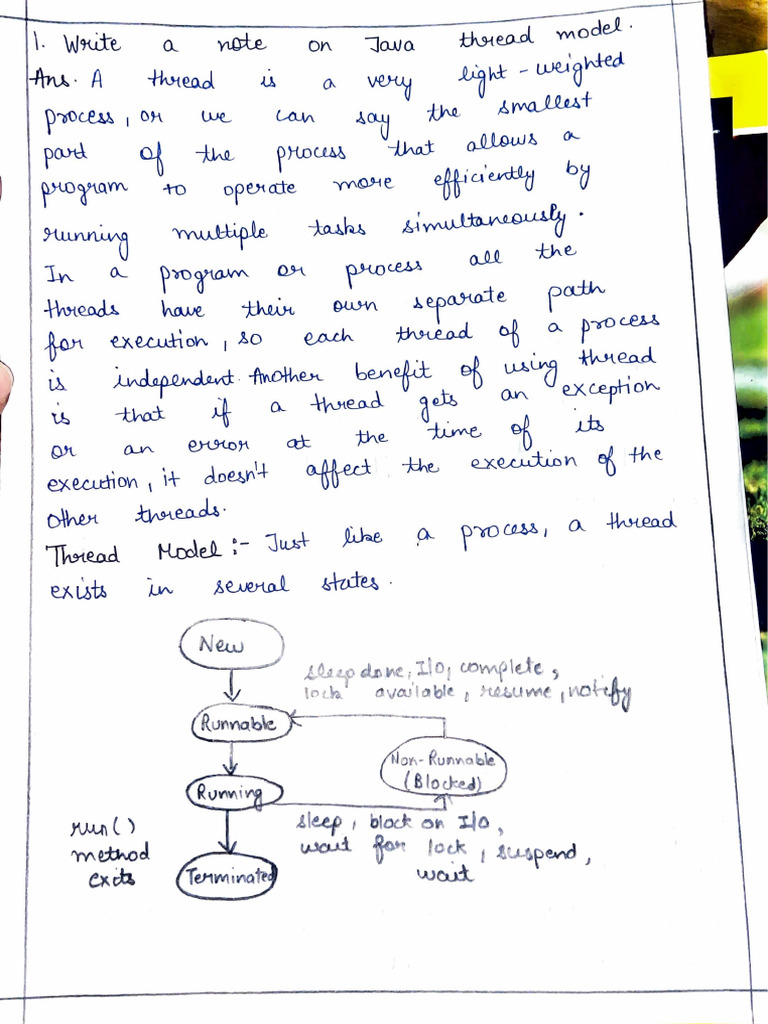 1. Write a note on Java thread model.
Ans. A thread is a very light-weighted
process, or we can say the smallest
part of the process that allows a
program to operate more efficiently by
running multiple tasks simultaneously.
In a program or process all the
threads have their own separate path
for execution, so each thread of a process
is independent. Another benefit of using thread
is that if a thread gets an exception
or an error at the time of its
execution, it doesn't affect the execution of the
other threads.
Thread Model :- Just like a process, a thread
exists in several states.
New
sleep done, I/O, complete,
lock available, resume, notify
Runnable
Non-Runnable
(Blocked)
Running
sleep, block on I/O,
wait for lock, suspend,
wait
run()
method
exits
Terminated